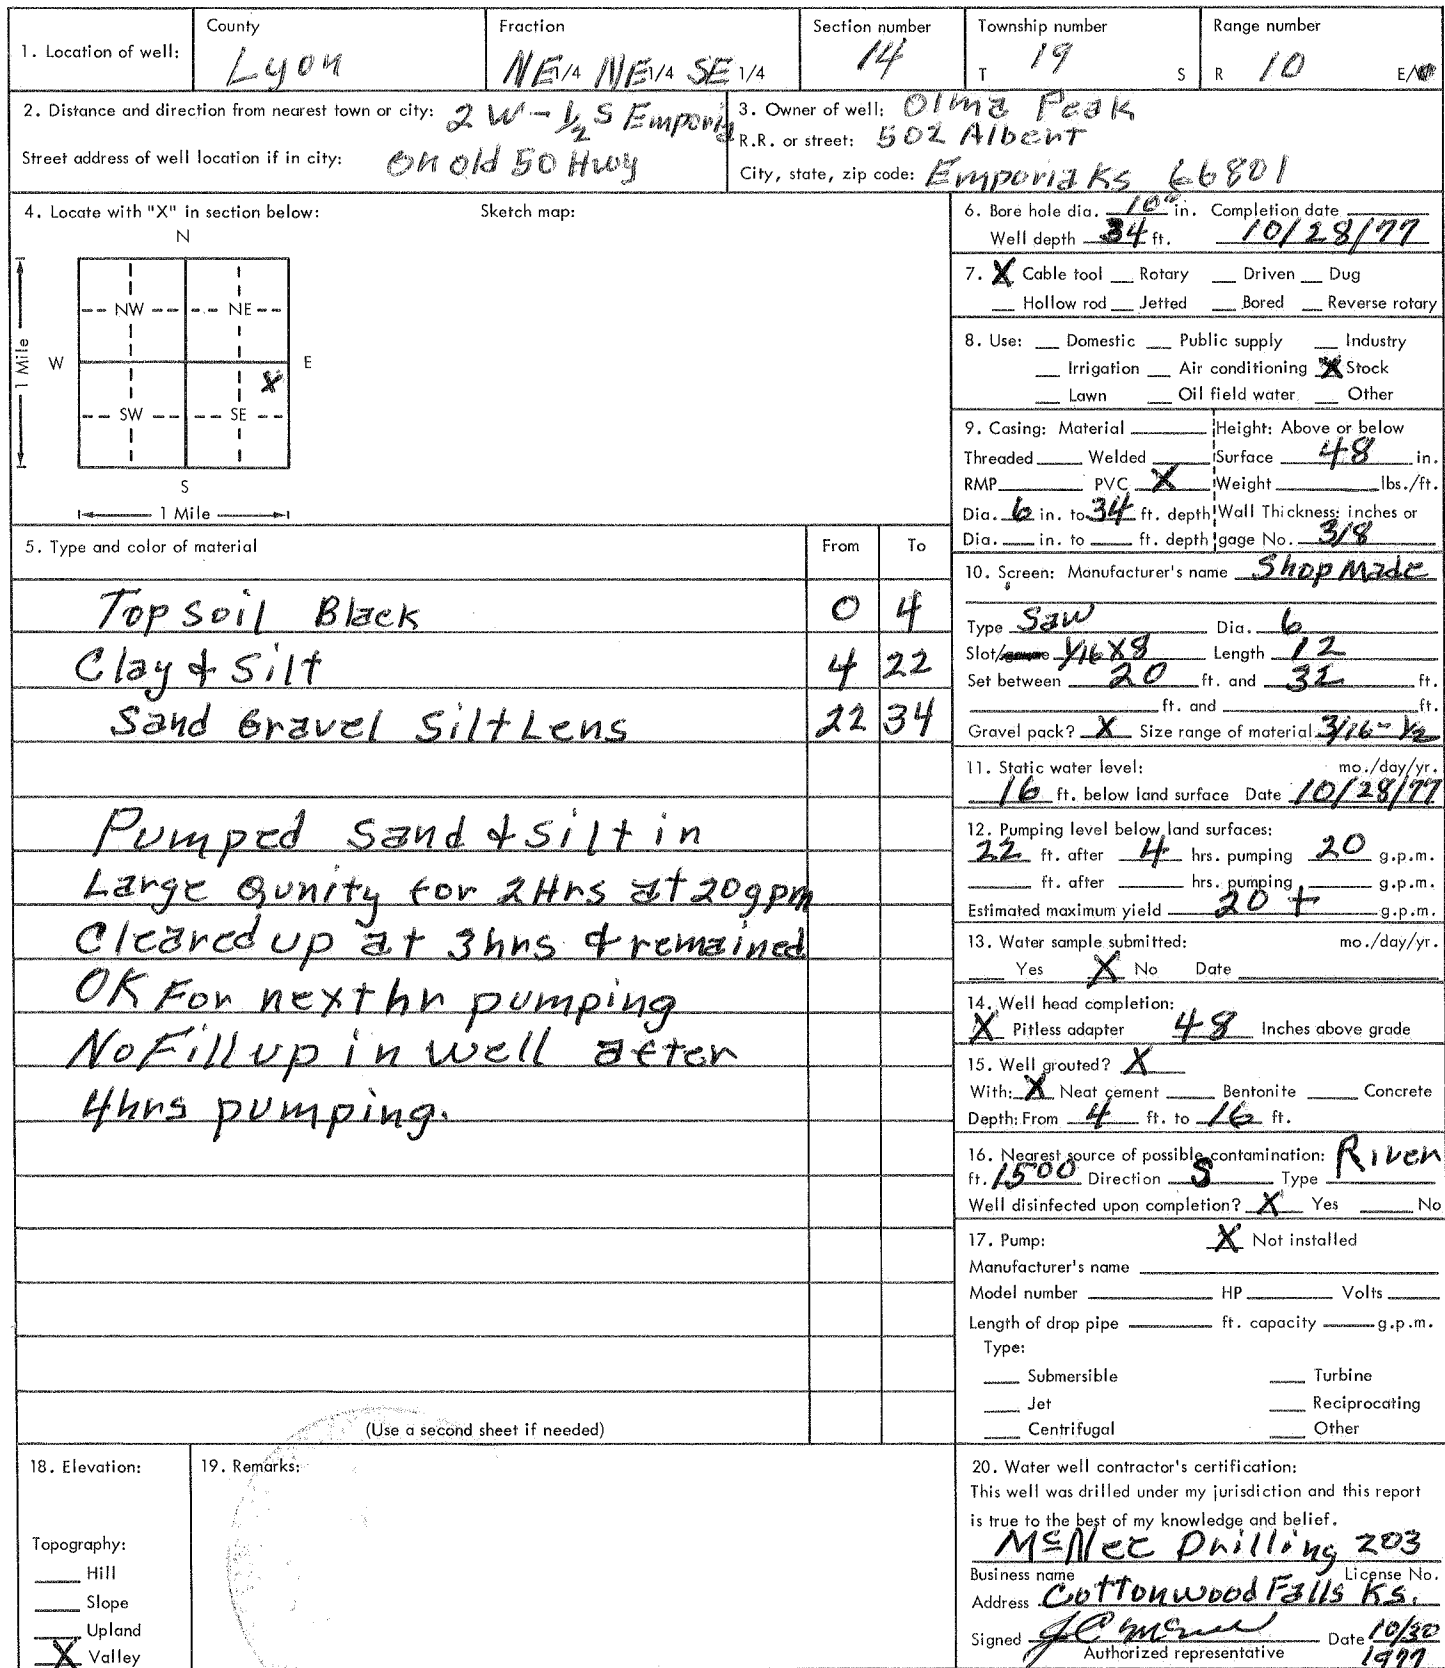 1. Location of well:
County
Lyon
Fraction
NE 1/4 NE 1/4 SE 1/4
Section number
14
Township number
T 19 S
Range number
R 10 E/W
2. Distance and direction from nearest town or city: 2 W - 1/2 S Emporia
Street address of well location if in city: on old 50 Hwy
3. Owner of well: Olma Peak
R.R. or street: 502 Albert
City, state, zip code: Emporia Ks 66801
4. Locate with "X" in section below:
Sketch map:
N
NW NE
1 Mile W E
X
SW SE
S
1 Mile
5. Type and color of material From To
Top Soil Black 0 4
Clay & Silt 4 22
Sand Gravel Silt Lens 22 34
Pumped Sand & Silt in
Large Qunity for 2 Hrs at 20gpm
Cleared up at 3 hrs & remained
OK For next hr pumping
No Fill up in well after
4 hrs pumping.
(Use a second sheet if needed)
6. Bore hole dia. 10 in. Completion date
Well depth 34 ft. 10/28/77
7. X Cable tool Rotary Driven Dug
Hollow rod Jetted Bored Reverse rotary
8. Use: Domestic Public supply Industry
Irrigation Air conditioning X Stock
Lawn Oil field water Other
9. Casing: Material Height: Above or below
Threaded Welded Surface 48 in.
RMP PVC X Weight lbs./ft.
Dia. 6 in. to 34 ft. depth Wall Thickness: inches or
Dia. in. to ft. depth gage No. 3/8
10. Screen: Manufacturer's name Shop Made
Type Saw Dia. 6
Slot/ 1/16 X 8 Length 12
Set between 20 ft. and 32 ft.
ft. and ft.
Gravel pack? X Size range of material 3/16 - 1/2
11. Static water level: mo./day/yr.
16 ft. below land surface Date 10/28/77
12. Pumping level below land surfaces:
22 ft. after 4 hrs. pumping 20 g.p.m.
ft. after hrs. pumping g.p.m.
Estimated maximum yield 20 + g.p.m.
13. Water sample submitted: mo./day/yr.
Yes X No Date
14. Well head completion:
X Pitless adapter 48 Inches above grade
15. Well grouted? X
With: X Neat cement Bentonite Concrete
Depth: From 4 ft. to 16 ft.
16. Nearest source of possible contamination: River
ft. 1500 Direction S Type
Well disinfected upon completion? X Yes No
17. Pump: X Not installed
Manufacturer's name
Model number HP Volts
Length of drop pipe ft. capacity g.p.m.
Type:
Submersible Turbine
Jet Reciprocating
Centrifugal Other
18. Elevation:
Topography:
Hill
Slope
Upland
X Valley
19. Remarks:
20. Water well contractor's certification:
This well was drilled under my jurisdiction and this report
is true to the best of my knowledge and belief.
McNee Drilling 203
Business name License No.
Address Cottonwood Falls Ks.
Signed Date 10/30
Authorized representative 1977